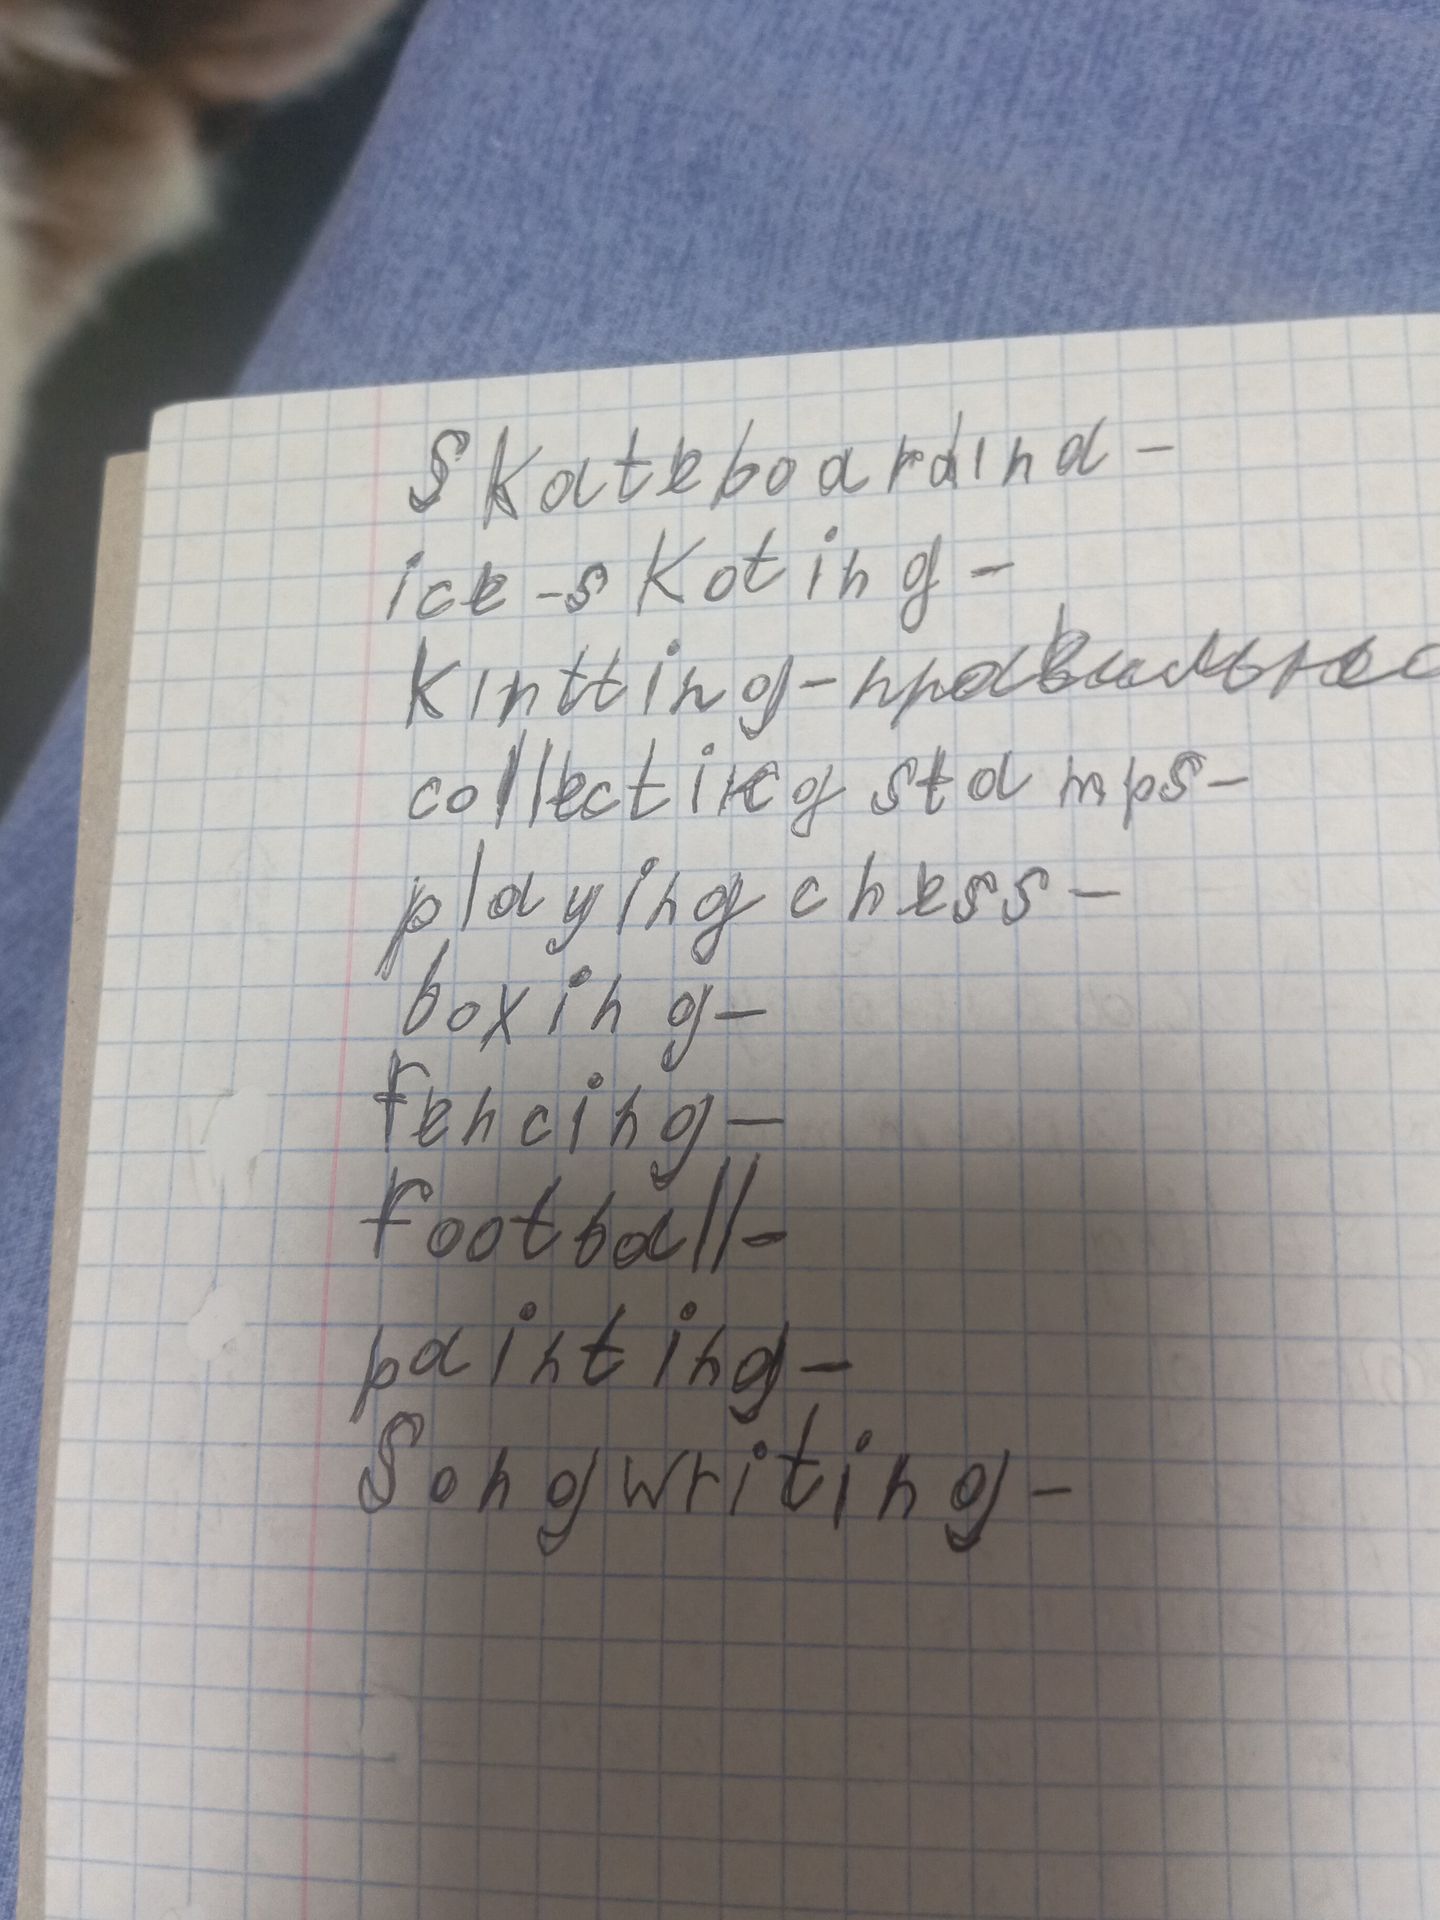 Skateboardind -
ice-skoting -
kintting - правильнос
collecting stamps -
playing chess -
boxing -
fencing -
football -
painting -
Songwriting -